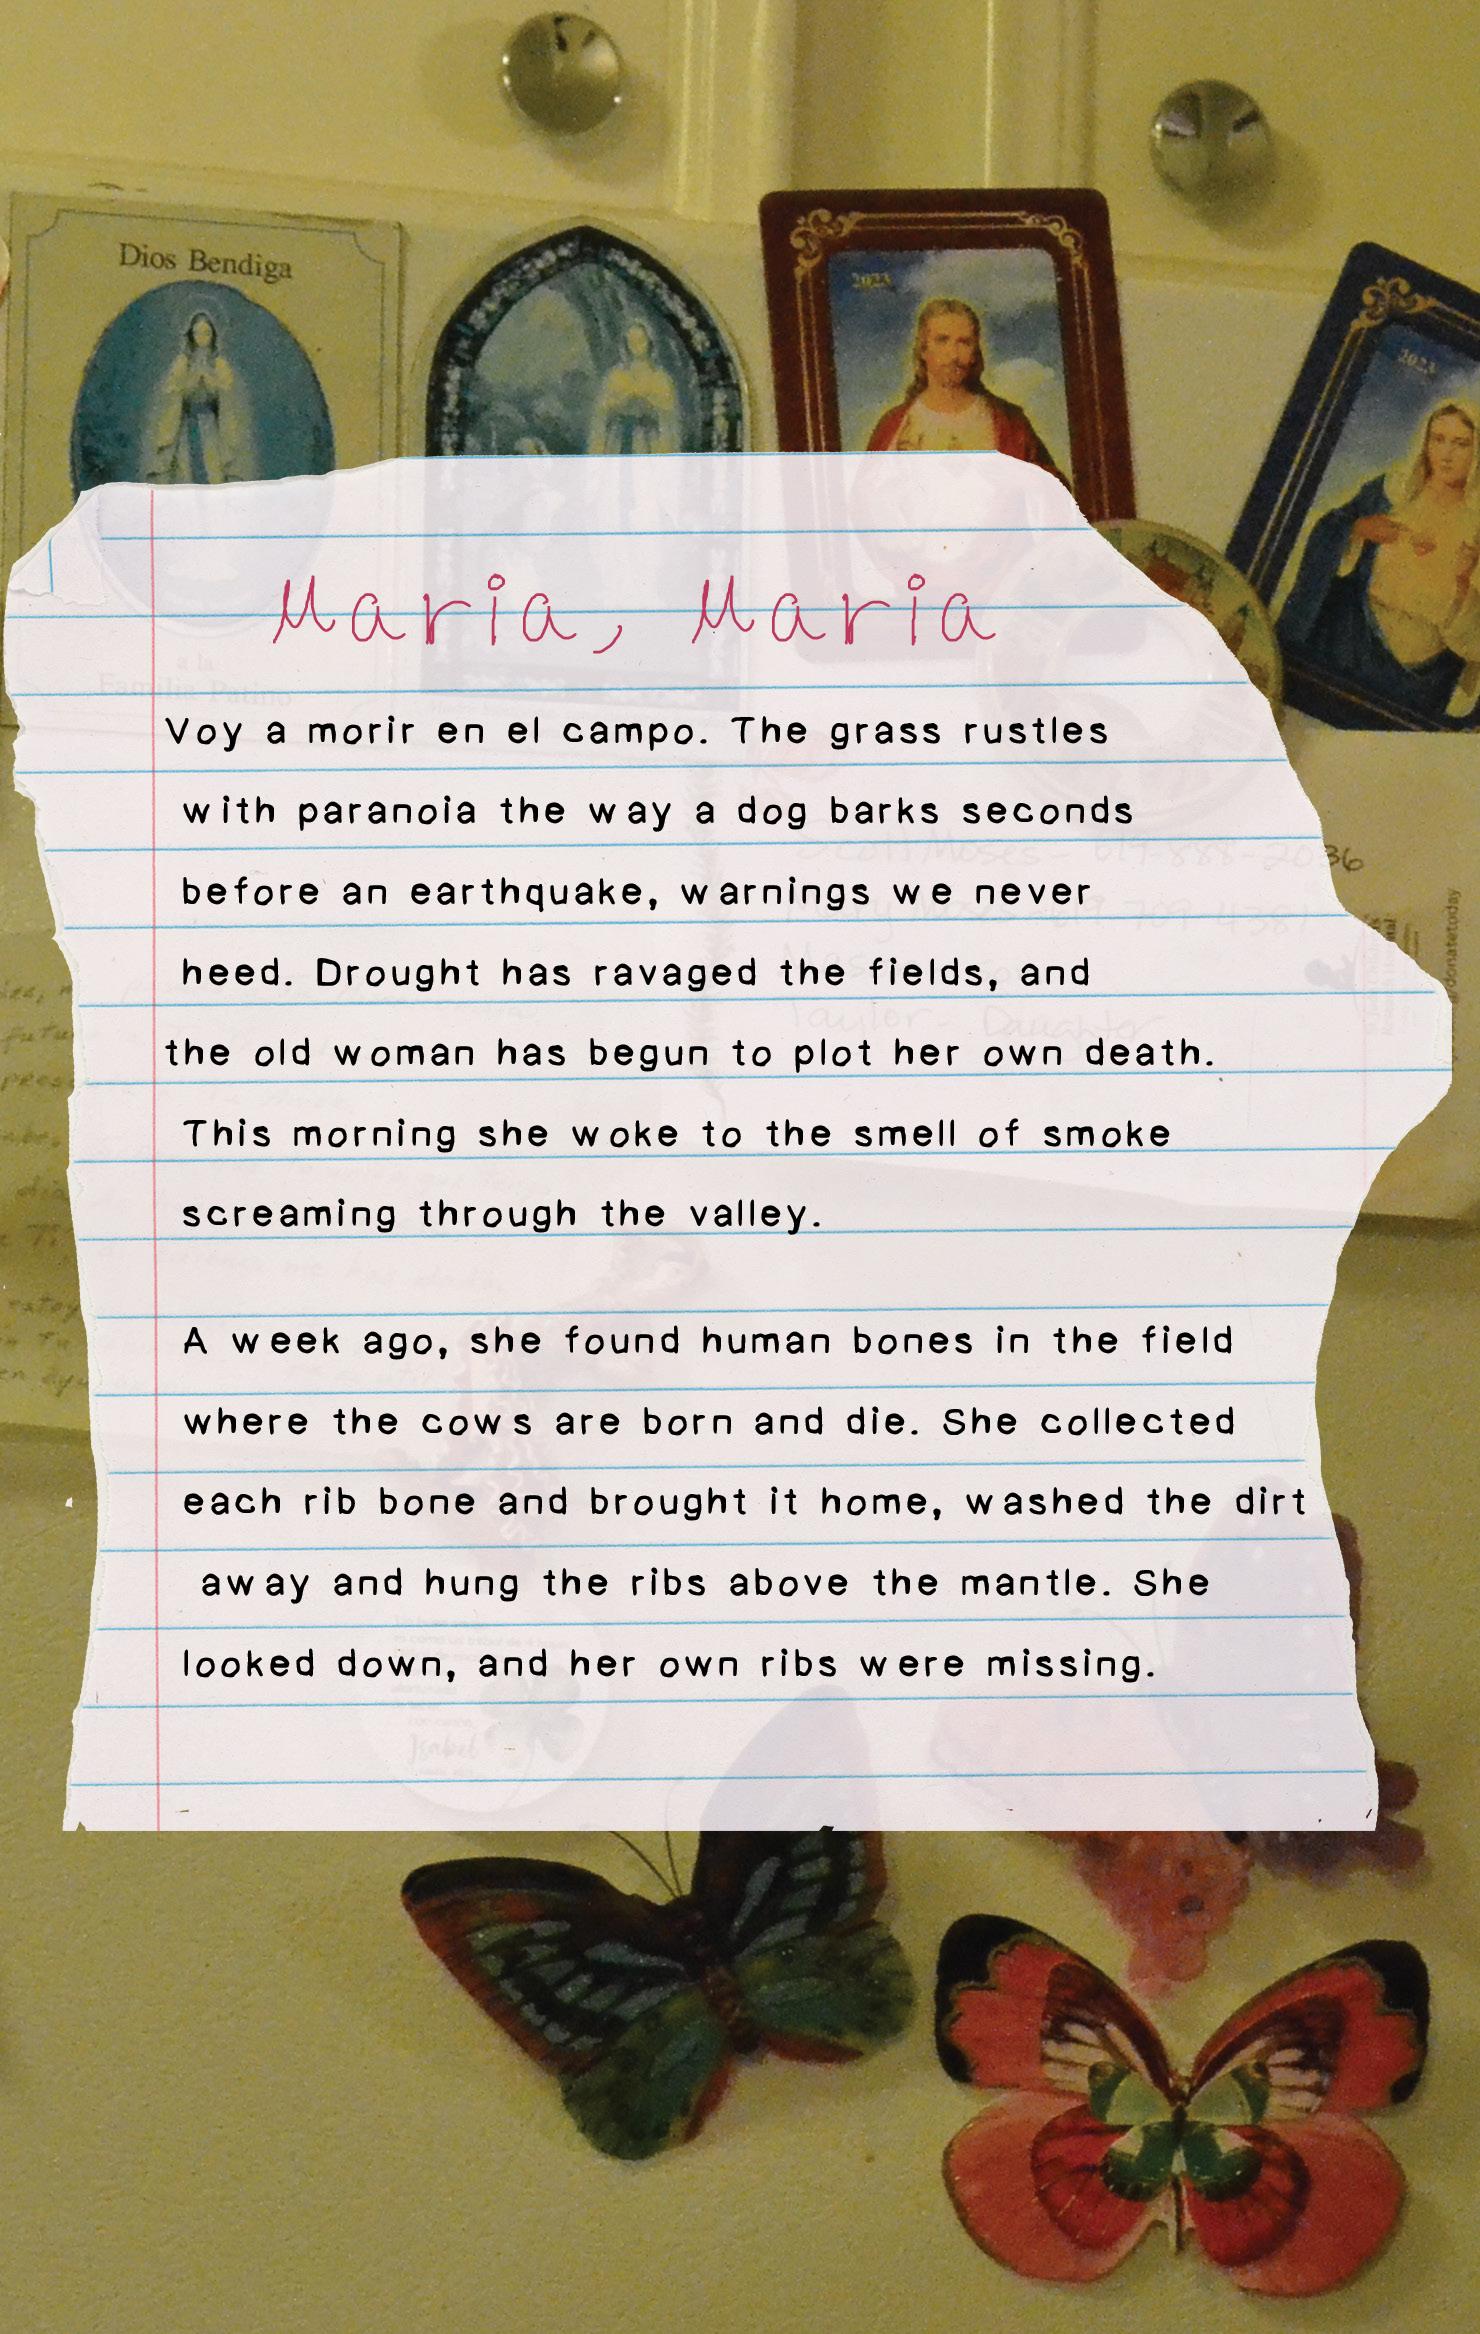 Dios Bendiga
2023
2023
Maria, Maria
a la
Familia Patino
Voy a morir en el campo. The grass rustles
with paranoia the way a dog barks seconds
before an earthquake, warnings we never
heed. Drought has ravaged the fields, and
the old woman has begun to plot her own death.
This morning she woke to the smell of smoke
screaming through the valley.
A week ago, she found human bones in the field
where the cows are born and die. She collected
each rib bone and brought it home, washed the dirt
away and hung the ribs above the mantle. She
looked down, and her own ribs were missing.
Scott Moses 619-888-2036
Moses 619-709-4381
Taylor - Daughter
@donatetoday
Isabel